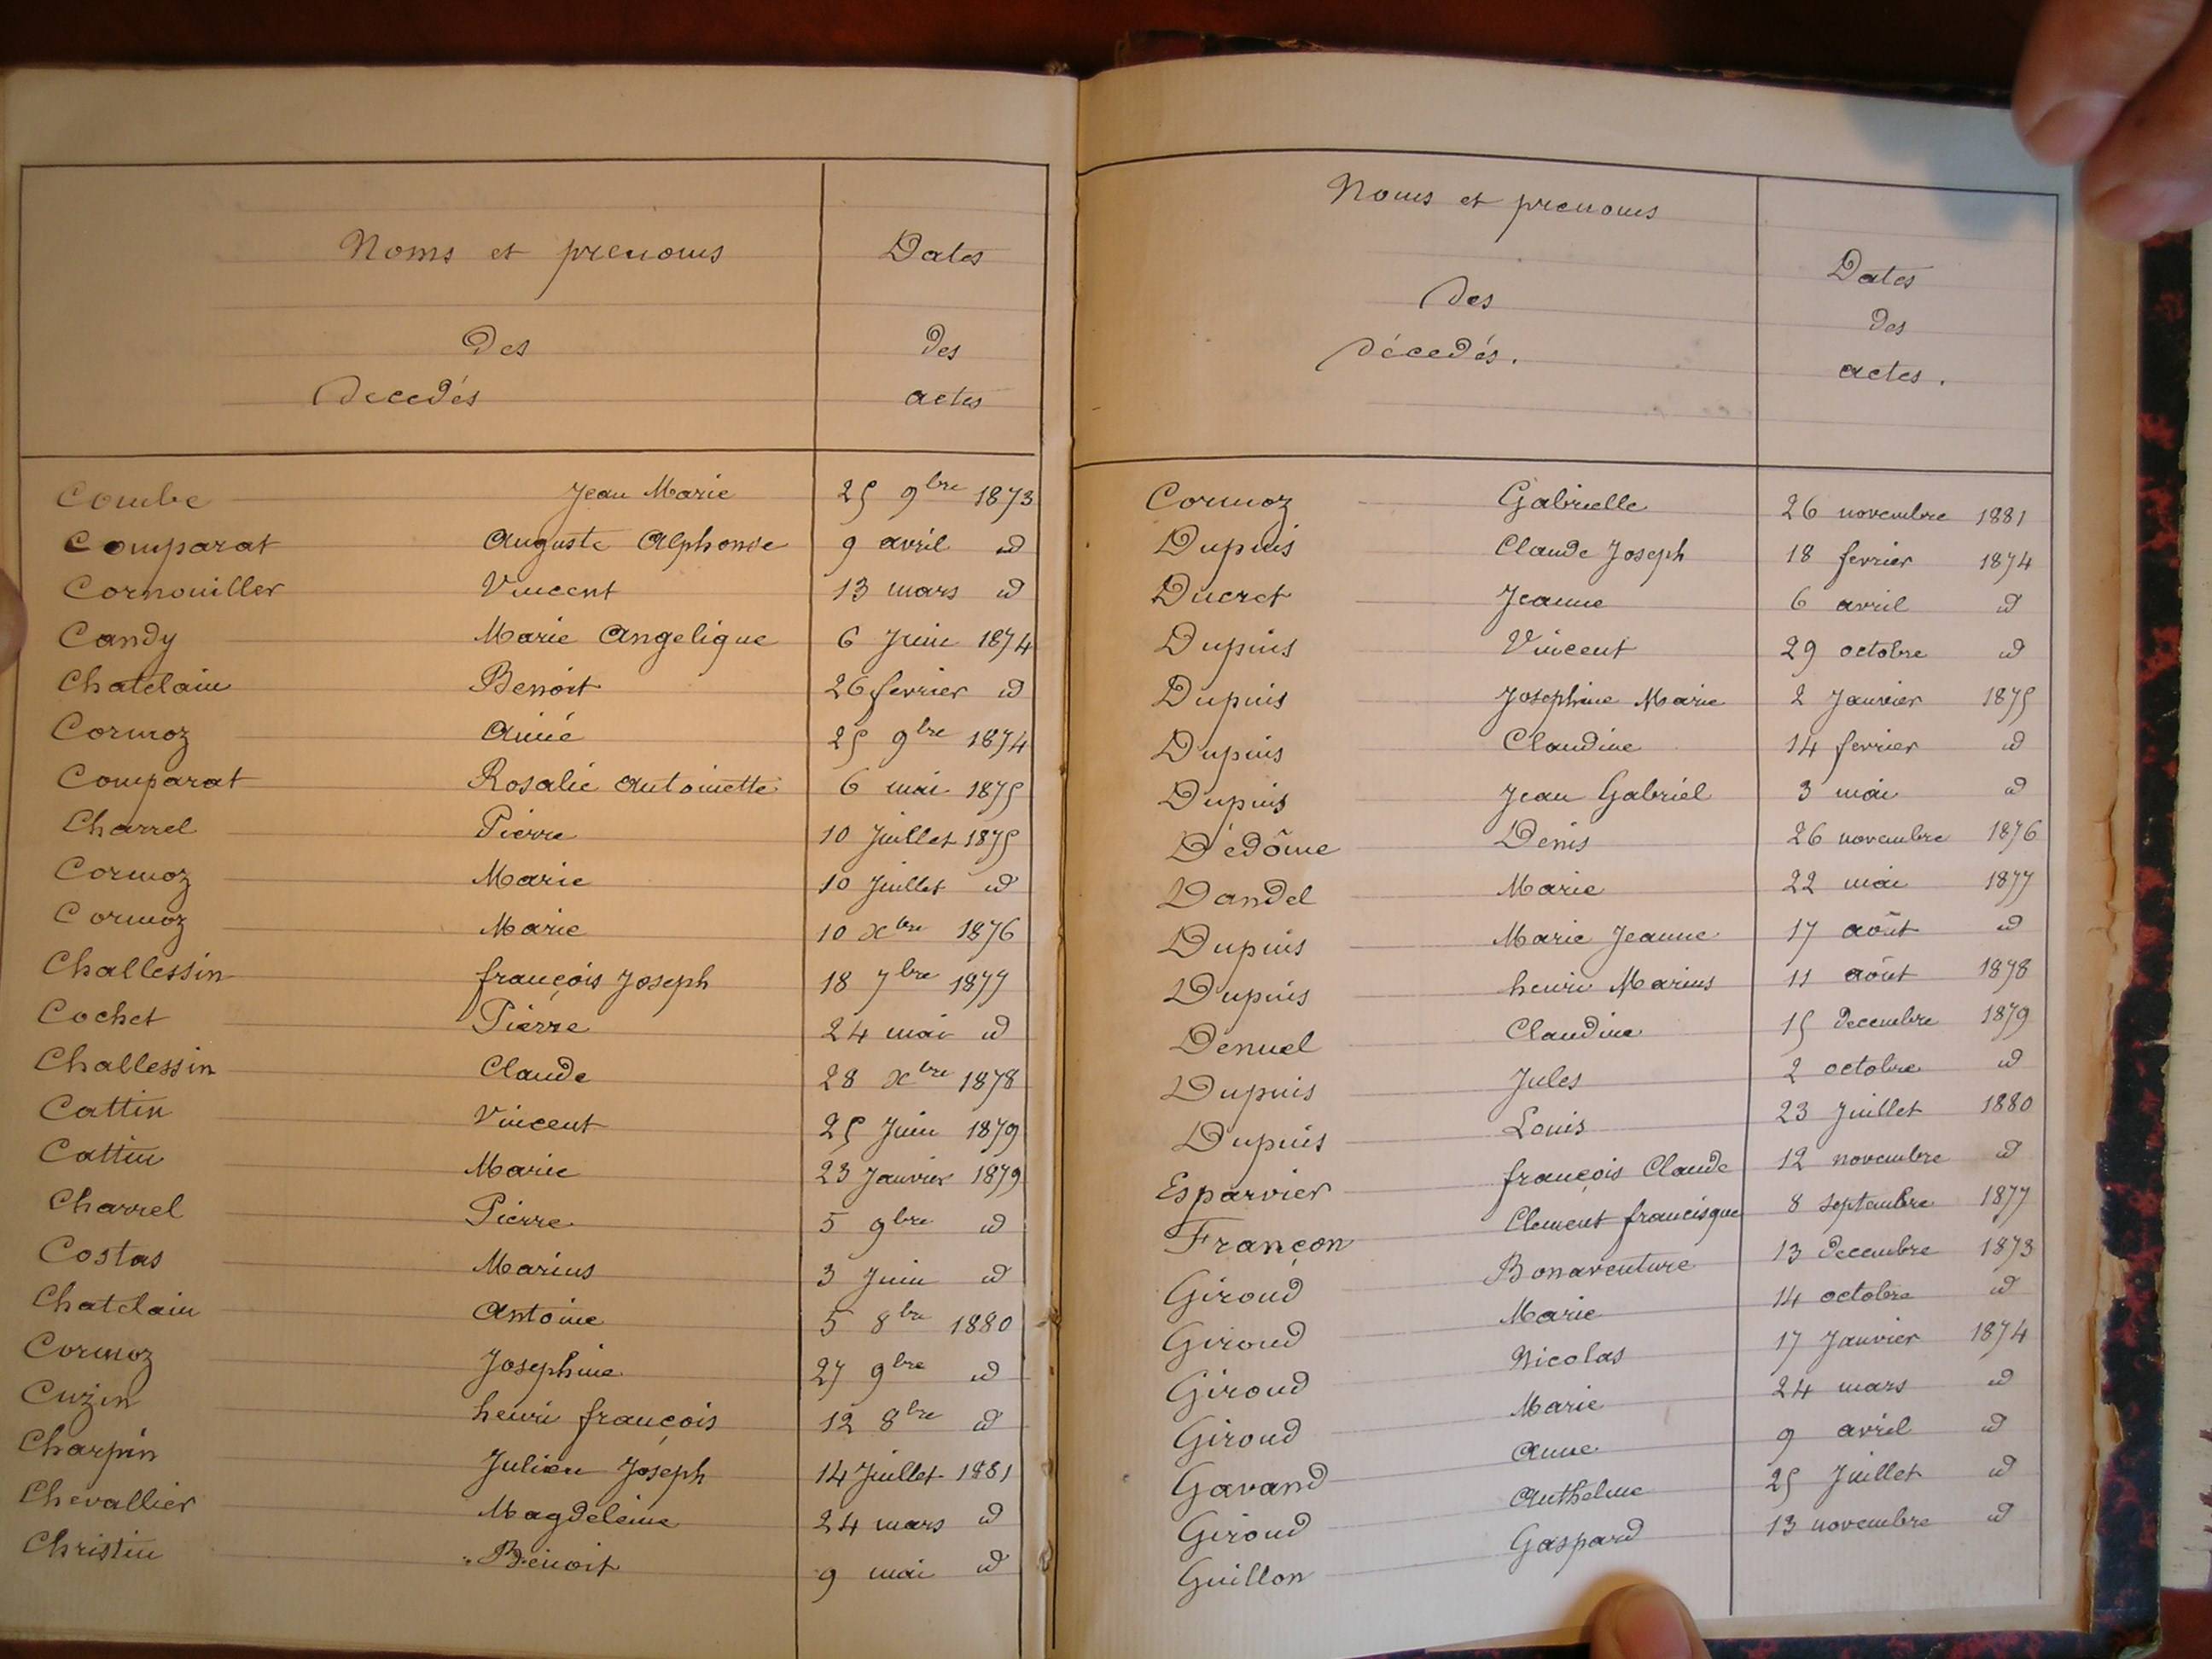 Noms et prenoms
Dates
des
des
Decedés
actes
Combe Jean Marie 25 9bre 1873
Comparat Auguste Alphonse 9 avril id
Cornouiller Vincent 13 mars id
Candy Marie Angelique 6 Juin 1874
Chatelain Benoit 26 fevrier id
Cormoz Aimé 25 9bre 1874
Comparat Rosalie Antoinette 6 mai 1875
Charrel Pierre 10 Juillet 1875
Cormoz Marie 10 Juillet id
Cormoz Marie 10 xbre 1876
Challessin françois Joseph 18 7bre 1877
Cochet Pierre 24 mai id
Challessin Claude 28 xbre 1878
Cattin Vincent 25 Juin 1879
Cattin Marie 23 Janvier 1879
Charrel Pierre 5 9bre id
Costas Marius 3 Juin id
Chatelain Antoine 5 8bre 1880
Cormoz Josephine 27 9bre id
Cuzin henri françois 12 8bre id
Charpin Julien Joseph 14 Juillet 1881
Chevallier Magdeleine 24 mars id
Christin Benoit 9 mai id
Noms et prenoms
Dates
des
des
décedés.
actes.
Cormoz Gabrielle 26 novembre 1881
Dupuis Claude Joseph 18 fevrier 1874
Ducret Jeanne 6 avril id
Dupuis Vincent 29 octobre id
Dupuis Josephine Marie 2 Janvier 1875
Dupuis Claudine 14 fevrier id
Dupuis Jean Gabriel 3 mai id
Dédôme Denis 26 novembre 1876
Dandel Marie 22 mai 1877
Dupuis Marie Jeanne 17 août id
Dupuis henri Marius 11 août 1878
Denuel Claudine 15 decembre 1879
Dupuis Jules 2 octobre id
Dupuis Louis 23 Juillet 1880
Esparvier françois Claude 12 novembre id
Françon Clement francisque 8 septembre 1877
Giroud Bonaventure 13 decembre 1873
Giroud Marie 14 octobre id
Giroud Nicolas 17 Janvier 1874
Giroud Marie 24 mars id
Gavand Anne 9 avril id
Giroud Anthelme 25 Juillet id
Guillon Gaspard 13 novembre id